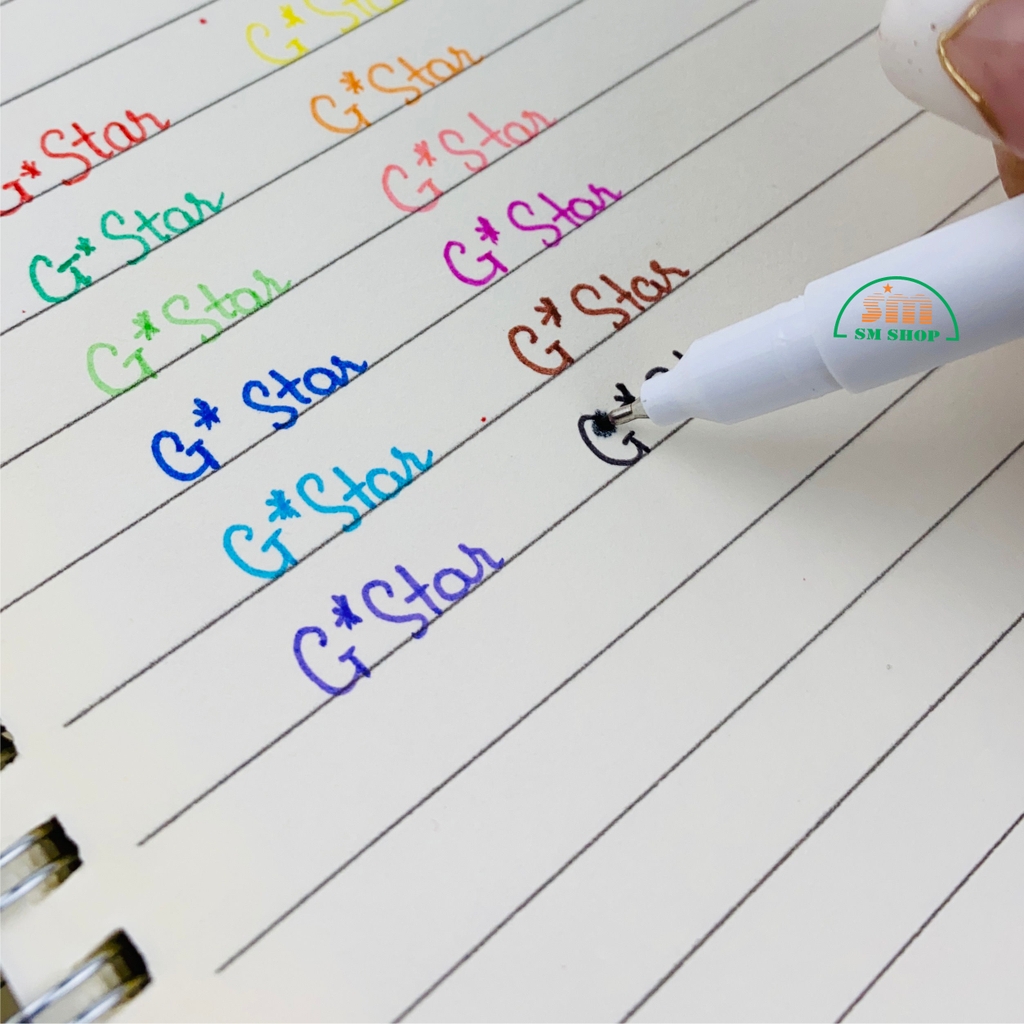 G*Star
G*Star
G*Star
G*Star
G*Star
G*Star
G*Star
G*Star
G*Star
G*Star
G*Star
G*
sm
SM SHOP